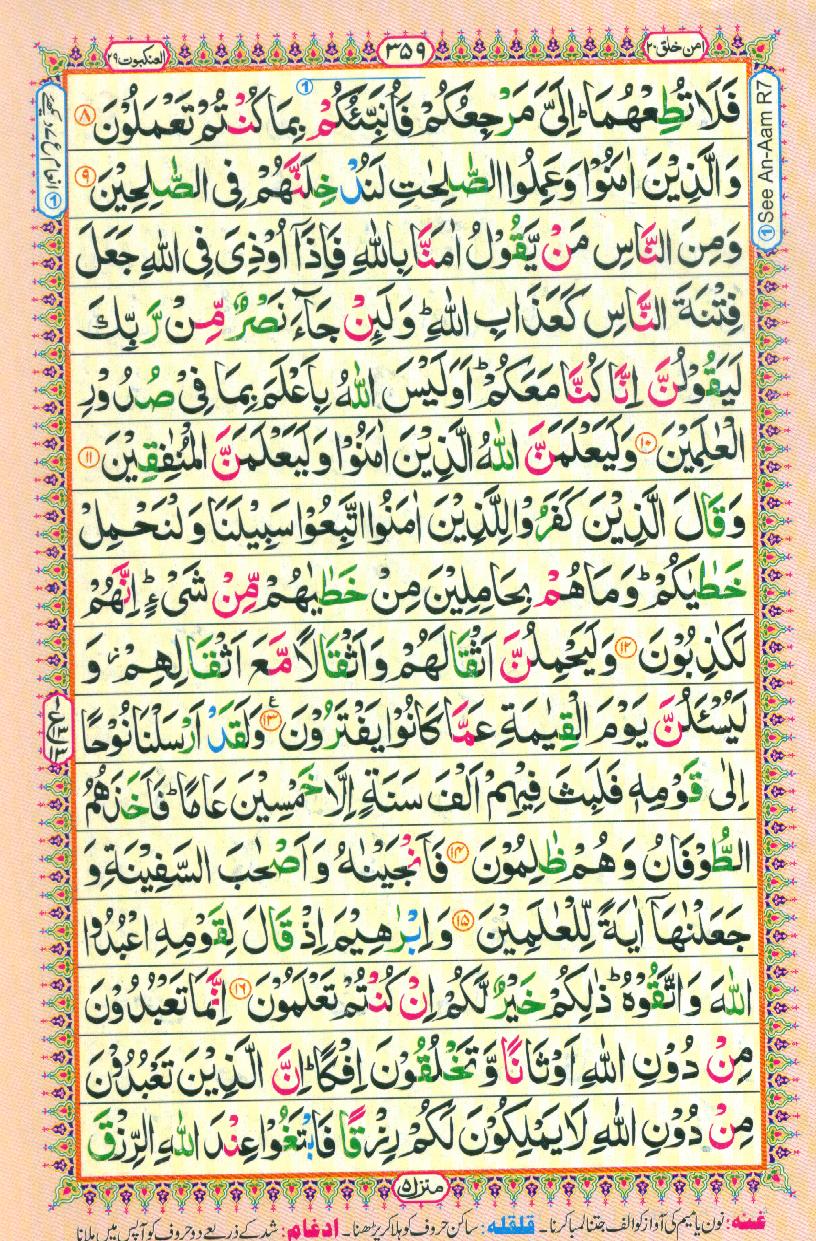 امن خلق ۲۰
۳۵۹
العنکبوت ۲۹
فَلَا تُطِعْهُمَا ؕ اِلَیَّ مَرْجِعُكُمْ فَاُنَبِّئُكُمْ بِمَا كُنْتُمْ تَعْمَلُوْنَ ۸
وَالَّذِیْنَ اٰمَنُوْا وَعَمِلُوا الصّٰلِحٰتِ لَنُدْخِلَنَّهُمْ فِی الصّٰلِحِیْنَ ۹
وَمِنَ النَّاسِ مَنْ یَّقُوْلُ اٰمَنَّا بِاللّٰهِ فَاِذَاۤ اُوْذِیَ فِی اللّٰهِ جَعَلَ
فِتْنَةَ النَّاسِ كَعَذَابِ اللّٰهِ ؕ وَلَىِٕنْ جَآءَ نَصْرٌ مِّنْ رَّبِّكَ
لَیَقُوْلُنَّ اِنَّا كُنَّا مَعَكُمْ ؕ اَوَلَیْسَ اللّٰهُ بِاَعْلَمَ بِمَا فِیْ صُدُوْرِ
الْعٰلَمِیْنَ ۱۰ وَلَیَعْلَمَنَّ اللّٰهُ الَّذِیْنَ اٰمَنُوْا وَلَیَعْلَمَنَّ الْمُنٰفِقِیْنَ ۱۱
وَقَالَ الَّذِیْنَ كَفَرُوْا لِلَّذِیْنَ اٰمَنُوا اتَّبِعُوْا سَبِیْلَنَا وَلْنَحْمِلْ
خَطٰیٰكُمْ ؕ وَمَا هُمْ بِحَامِلِیْنَ مِنْ خَطٰیٰهُمْ مِّنْ شَیْءٍ ؕ اِنَّهُمْ
لَكٰذِبُوْنَ ۱۲ وَلَیَحْمِلُنَّ اَثْقَالَهُمْ وَاَثْقَالًا مَّعَ اَثْقَالِهِمْ ؗ وَ
لَیُسْـَٔلُنَّ یَوْمَ الْقِیٰمَةِ عَمَّا كَانُوْا یَفْتَرُوْنَ ۱۳ ع وَلَقَدْ اَرْسَلْنَا نُوْحًا
اِلٰی قَوْمِهٖ فَلَبِثَ فِیْهِمْ اَلْفَ سَنَةٍ اِلَّا خَمْسِیْنَ عَامًا ؕ فَاَخَذَهُمُ
الطُّوْفَانُ وَهُمْ ظٰلِمُوْنَ ۱۴ فَاَنْجَیْنٰهُ وَاَصْحٰبَ السَّفِیْنَةِ وَ
جَعَلْنٰهَاۤ اٰیَةً لِّلْعٰلَمِیْنَ ۱۵ وَاِبْرٰهِیْمَ اِذْ قَالَ لِقَوْمِهِ اعْبُدُوا
اللّٰهَ وَاتَّقُوْهُ ؕ ذٰلِكُمْ خَیْرٌ لَّكُمْ اِنْ كُنْتُمْ تَعْلَمُوْنَ ۱۶ اِنَّمَا تَعْبُدُوْنَ
مِنْ دُوْنِ اللّٰهِ اَوْثَانًا وَّتَخْلُقُوْنَ اِفْكًا ؕ اِنَّ الَّذِیْنَ تَعْبُدُوْنَ
مِنْ دُوْنِ اللّٰهِ لَا یَمْلِكُوْنَ لَكُمْ رِزْقًا فَابْتَغُوْا عِنْدَ اللّٰهِ الرِّزْقَ
① See An-Aam R7
منزل ۵
غنه: نون یا میم کی آواز کو الف جتنا لمبا کرنا۔ قلقله: ساکن حروف کو ہلا کر پڑھنا۔ ادغام: شد کے ذریعے دو حروف کو آپس میں ملانا